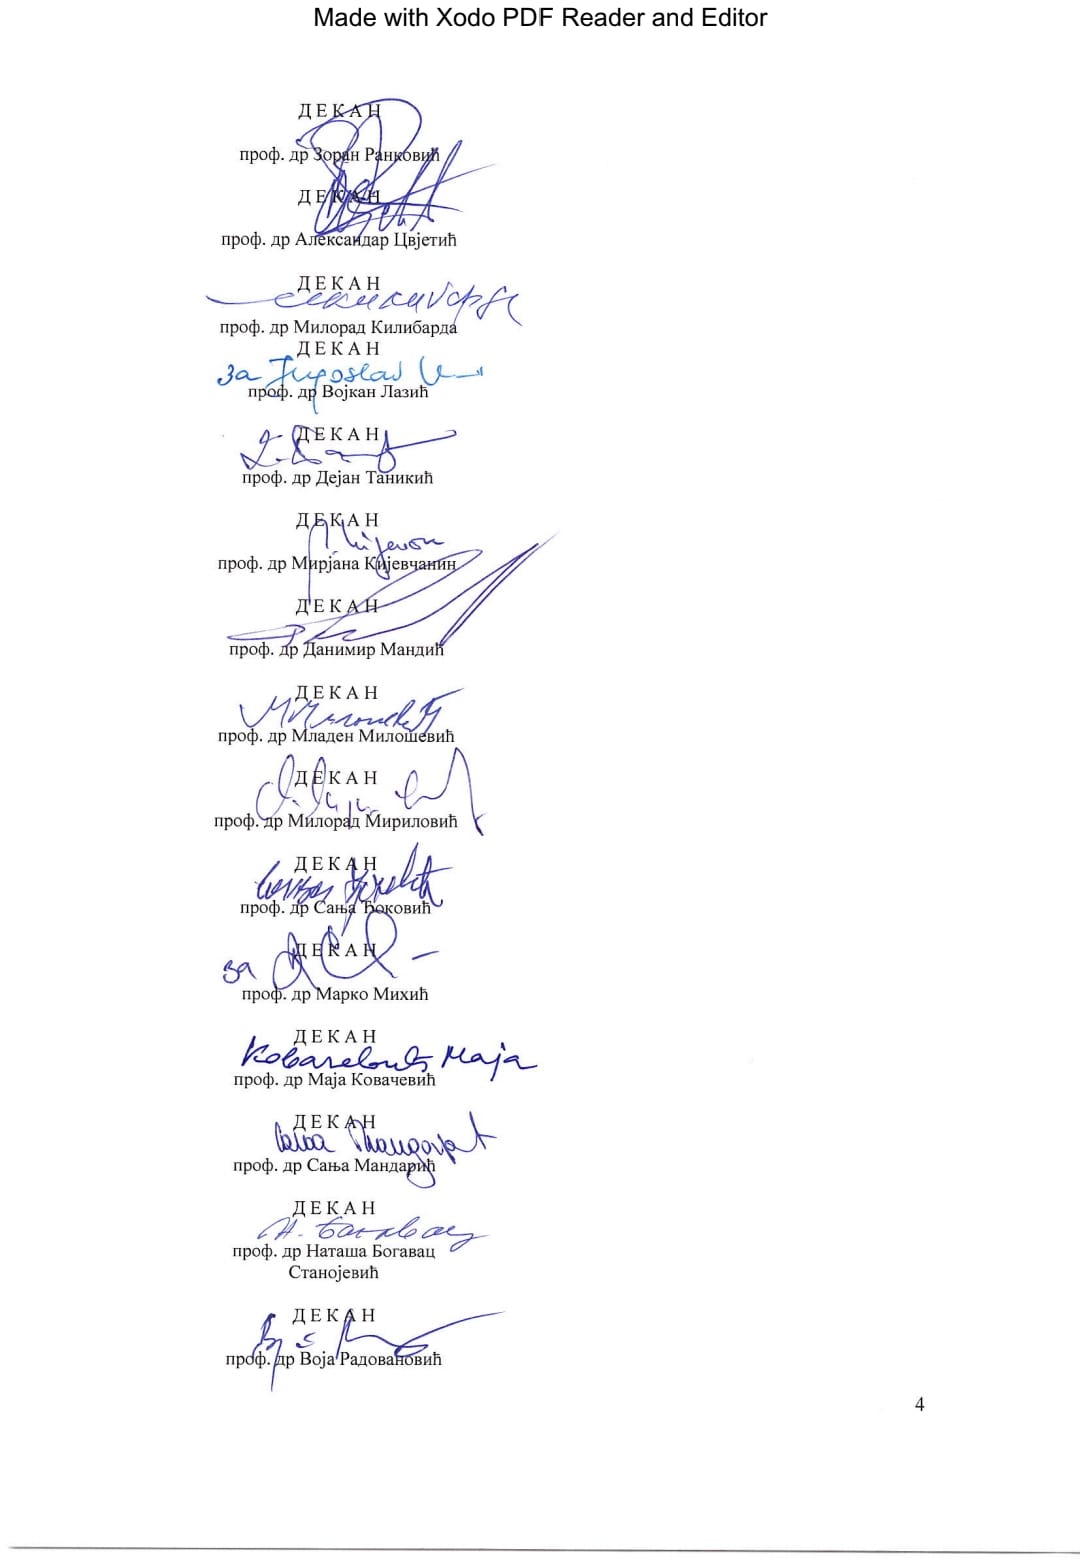 Made with Xodo PDF Reader and Editor
Д Е К А Н
проф. др Зоран Ранковић
Д Е К А Н
проф. др Александар Цвјетић
Д Е К А Н
проф. др Милорад Килибарда
Д Е К А Н
за
проф. др Војкан Лазић
Д Е К А Н
проф. др Дејан Таникић
Д Е К А Н
проф. др Мирјана Кијевчанин
Д Е К А Н
проф. др Данимир Мандић
Д Е К А Н
проф. др Младен Милошевић
Д Е К А Н
проф. др Милорад Мириловић
Д Е К А Н
проф. др Сања Ћоковић
Д Е К А Н
за
проф. др Марко Михић
Д Е К А Н
Маја
проф. др Маја Ковачевић
Д Е К А Н
проф. др Сања Мандарић
Д Е К А Н
проф. др Наташа Богавац
Станојевић
Д Е К А Н
проф. др Воја Радовановић
4